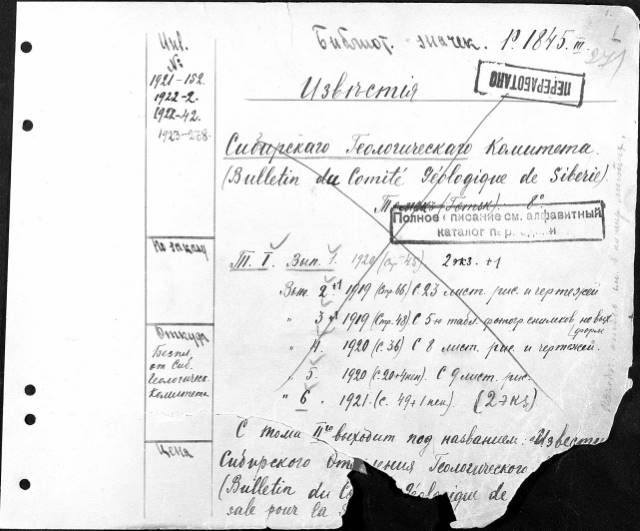 Библіот. значек. р. 1845. III.
ПЕРЕРАБОТАНО
Инв.
№
1921-152.
1922-2.
1922-42.
1923-238.
Извѣстія
Сибирскаго Геологическаго Комитета.
(Bulletin du Comité Géologique de Siberie)
Томскъ 8°.
Полное описание см. алфавитный
каталог
По заказу
Т. I. Вып. 1. 1920 (Стр. 43) 2 экз. +1
Вып. 2 +1 1919 (Стр. 66) С 23 лист. рис. и чертежей
" 3 +1 1919 (Стр. 48) С 5ю табл. фотогр. снимков новых
форм
" 4. 1920 (С. 36) С 8 лист. рис. и чертежей.
" 5. 1920 (с. 20+4 нен). С 9 лист. рис.
" 6. 1921. (с. 49+1 нен). (2 экз)
Откуда
Безпл.
от Сиб.
Геологическ.
Комитета
Цена
С тома IIго выходит под названием: Известия
Сибирского Отделения Геологического
(Bulletin du Géologique de
pour la